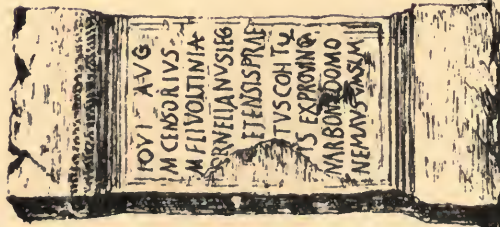 IOVI AVG
M CENSORIVS
M FIL VOLTINIA
ORNELIANVS LEG
ETENSIS PRAE
TVS COH
IS EX PROVIN
NARBON DOMO
NEMAVS SLM